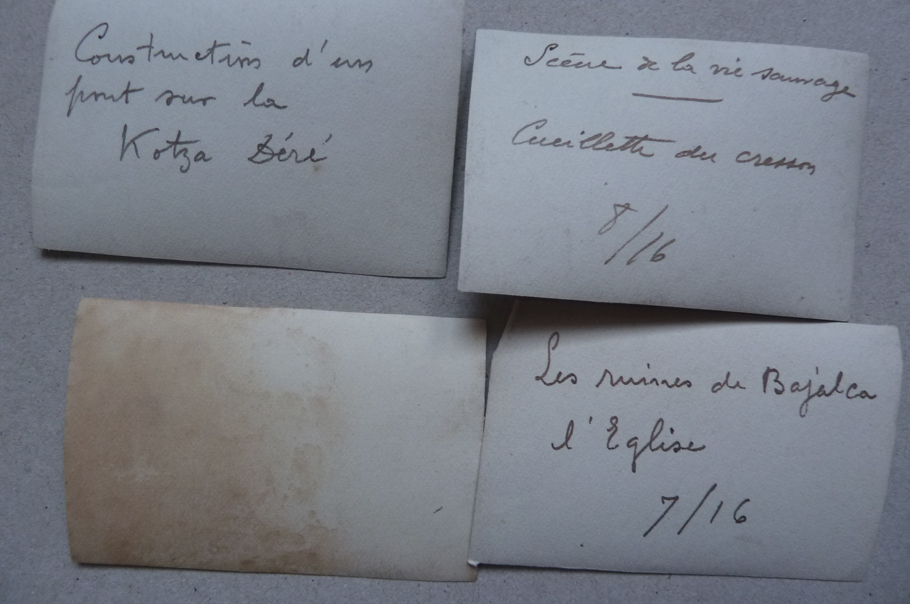 Construction d'un
pont sur la
Kotza Déré
Scène de la vie sauvage
Cueillette du cresson
8/16
Les ruines de Bajalca
l'Eglise
7/16